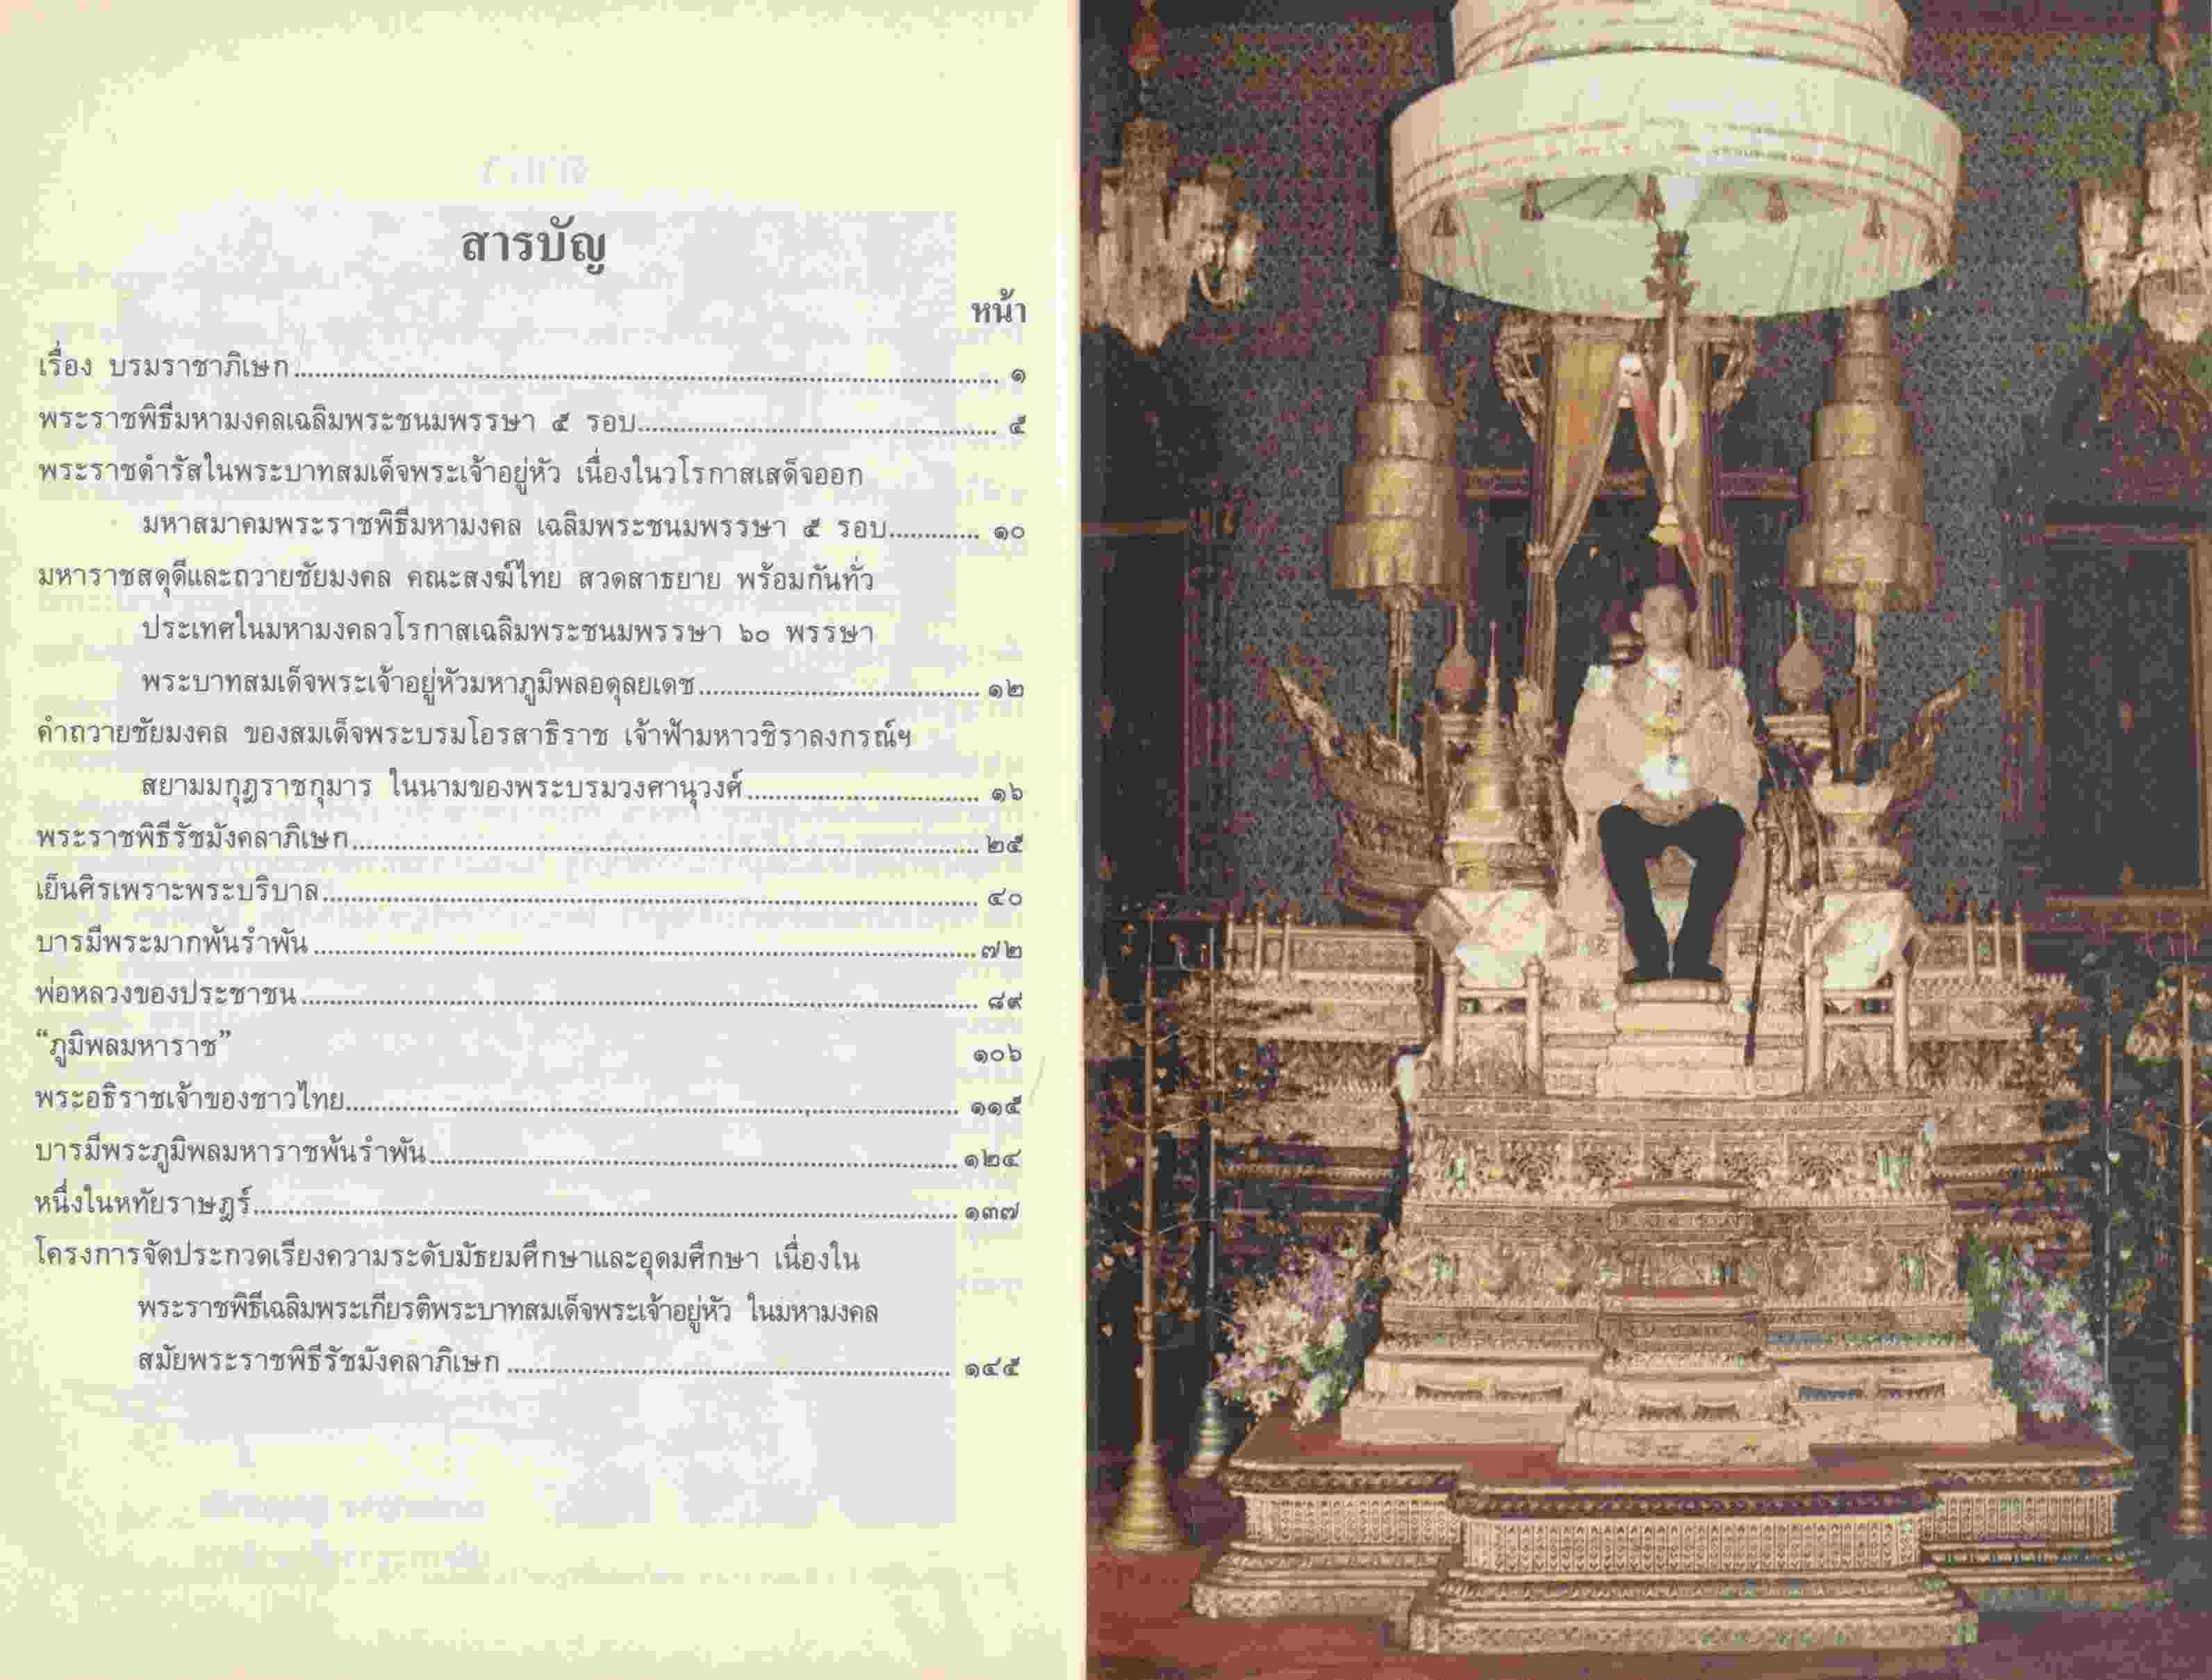 สารบัญ
หน้า
เรื่อง บรมราชาภิเษก ๑
พระราชพิธีมหามงคลเฉลิมพระชนมพรรษา ๕ รอบ ๕
พระราชดำรัสในพระบาทสมเด็จพระเจ้าอยู่หัว เนื่องในวโรกาสเสด็จออก
มหาสมาคมพระราชพิธีมหามงคล เฉลิมพระชนมพรรษา ๕ รอบ ๑๐
มหาราชสดุดีและถวายชัยมงคล คณะสงฆ์ไทย สวดสาธยาย พร้อมกันทั่ว
ประเทศในมหามงคลวโรกาสเฉลิมพระชนมพรรษา ๖๐ พรรษา
พระบาทสมเด็จพระเจ้าอยู่หัวมหาภูมิพลอดุลยเดช ๑๒
คำถวายชัยมงคล ของสมเด็จพระบรมโอรสาธิราช เจ้าฟ้ามหาวชิราลงกรณ์ฯ
สยามมกุฎราชกุมาร ในนามของพระบรมวงศานุวงศ์ ๑๖
พระราชพิธีรัชมังคลาภิเษก ๒๕
เย็นศิรเพราะพระบริบาล ๔๐
บารมีพระมากพ้นรำพัน ๗๒
พ่อหลวงของประชาชน ๘๙
“ภูมิพลมหาราช” ๑๐๖
พระอธิราชเจ้าของชาวไทย ๑๑๕
บารมีพระภูมิพลมหาราชพ้นรำพัน ๑๒๔
หนึ่งในหทัยราษฎร์ ๑๓๗
โครงการจัดประกวดเรียงความระดับมัธยมศึกษาและอุดมศึกษา เนื่องใน
พระราชพิธีเฉลิมพระเกียรติพระบาทสมเด็จพระเจ้าอยู่หัว ในมหามงคล
สมัยพระราชพิธีรัชมังคลาภิเษก ๑๔๕